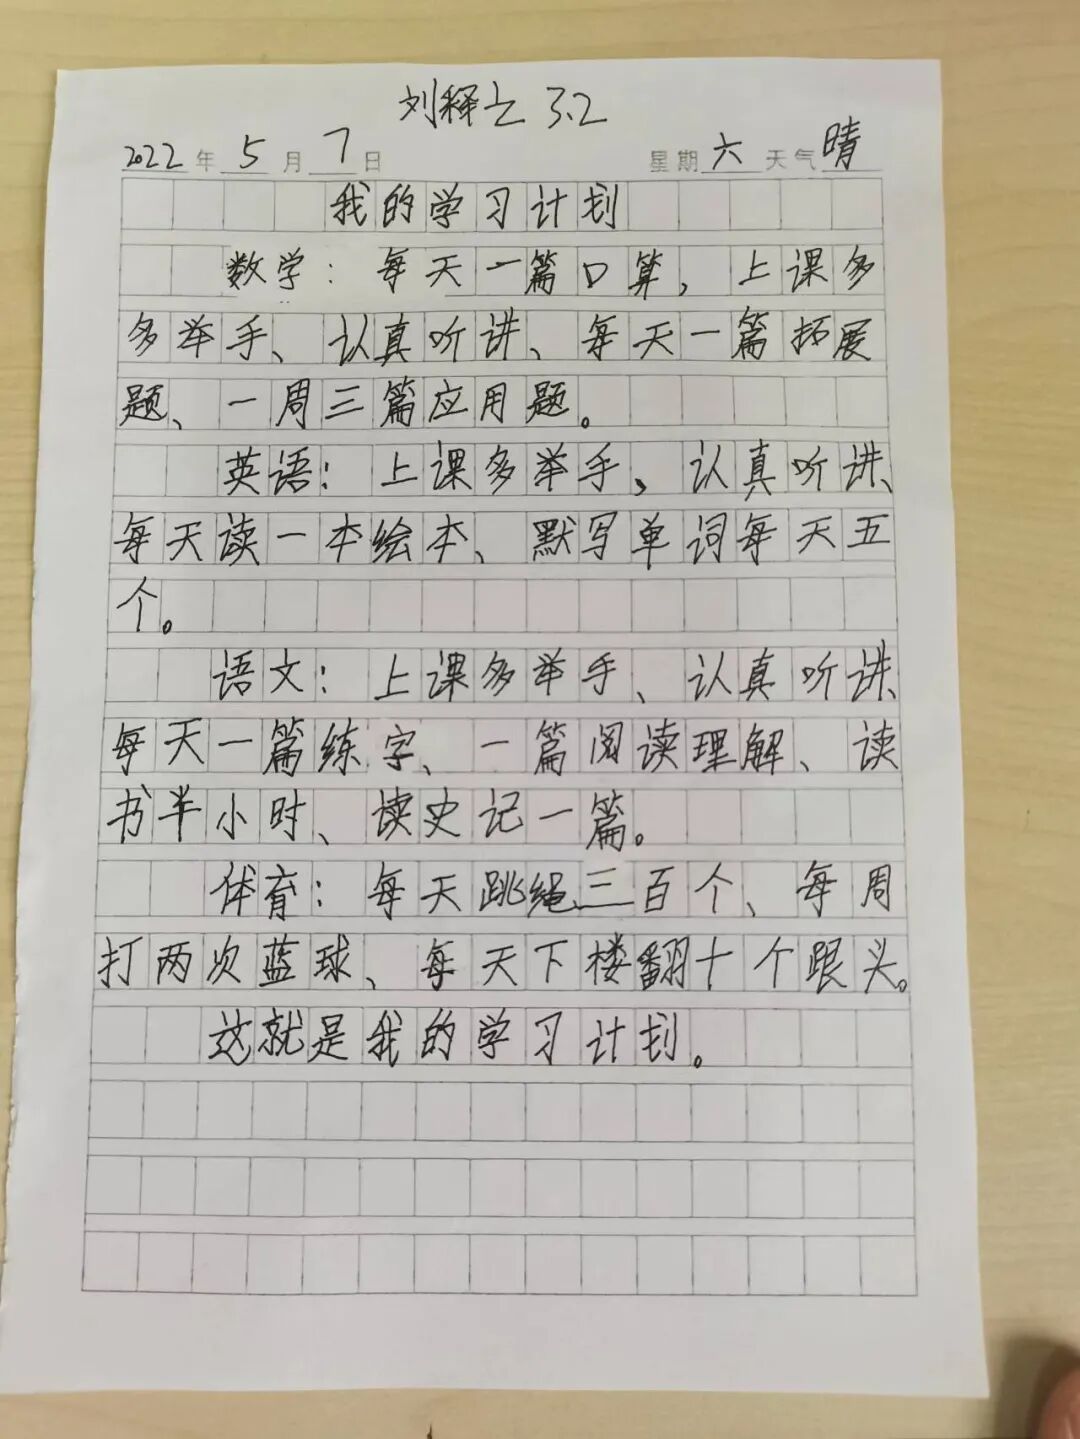 刘释之 3.2
2022年5月7日 星期六 天气晴
我的学习计划
数学：每天一篇口算，上课多
多举手、认真听讲、每天一篇拓展
题、一周三篇应用题。
英语：上课多举手，认真听讲、
每天读一本绘本、默写单词每天五
个。
语文：上课多举手、认真听讲、
每天一篇练字、一篇阅读理解、读
书半小时、读史记一篇。
体育：每天跳绳三百个、每周
打两次蓝球、每天下楼翻十个跟头。
这就是我的学习计划。